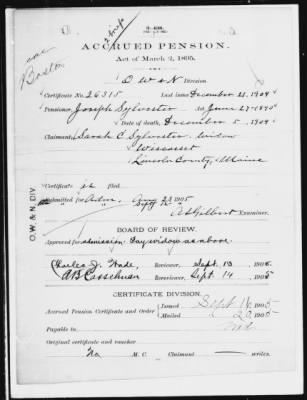 2 wife
3-431.
ACCRUED PENSION.
Act of March 2, 1895.
Boston
O W & N Division
Certificate No. 26315 Last issue December 21, 1904
Pensioner, Joseph Sylvester Act June 27-1890
Date of death, December 5, 1904
Claimant, Sarah C. Sylvester widow
Wiscasset
Lincoln County, Maine
O.W. & N. DIV.
Certificate is filed
Submitted for Adm. Aug 23 1905
Sept 12
A S Gilbert Examiner.
BOARD OF REVIEW.
Approved for admission. Pay widow as above
Charles J. Wade, Reviewer, Sept. 13 1905
Rereviewer, Sept. 14 1905
CERTIFICATE DIVISION.
Accrued Pension Certificate and Order
Issued Sept 16 1905
Mailed 20 1905
Payable to
Original certificate and voucher
No M. C. Claimant — writes.